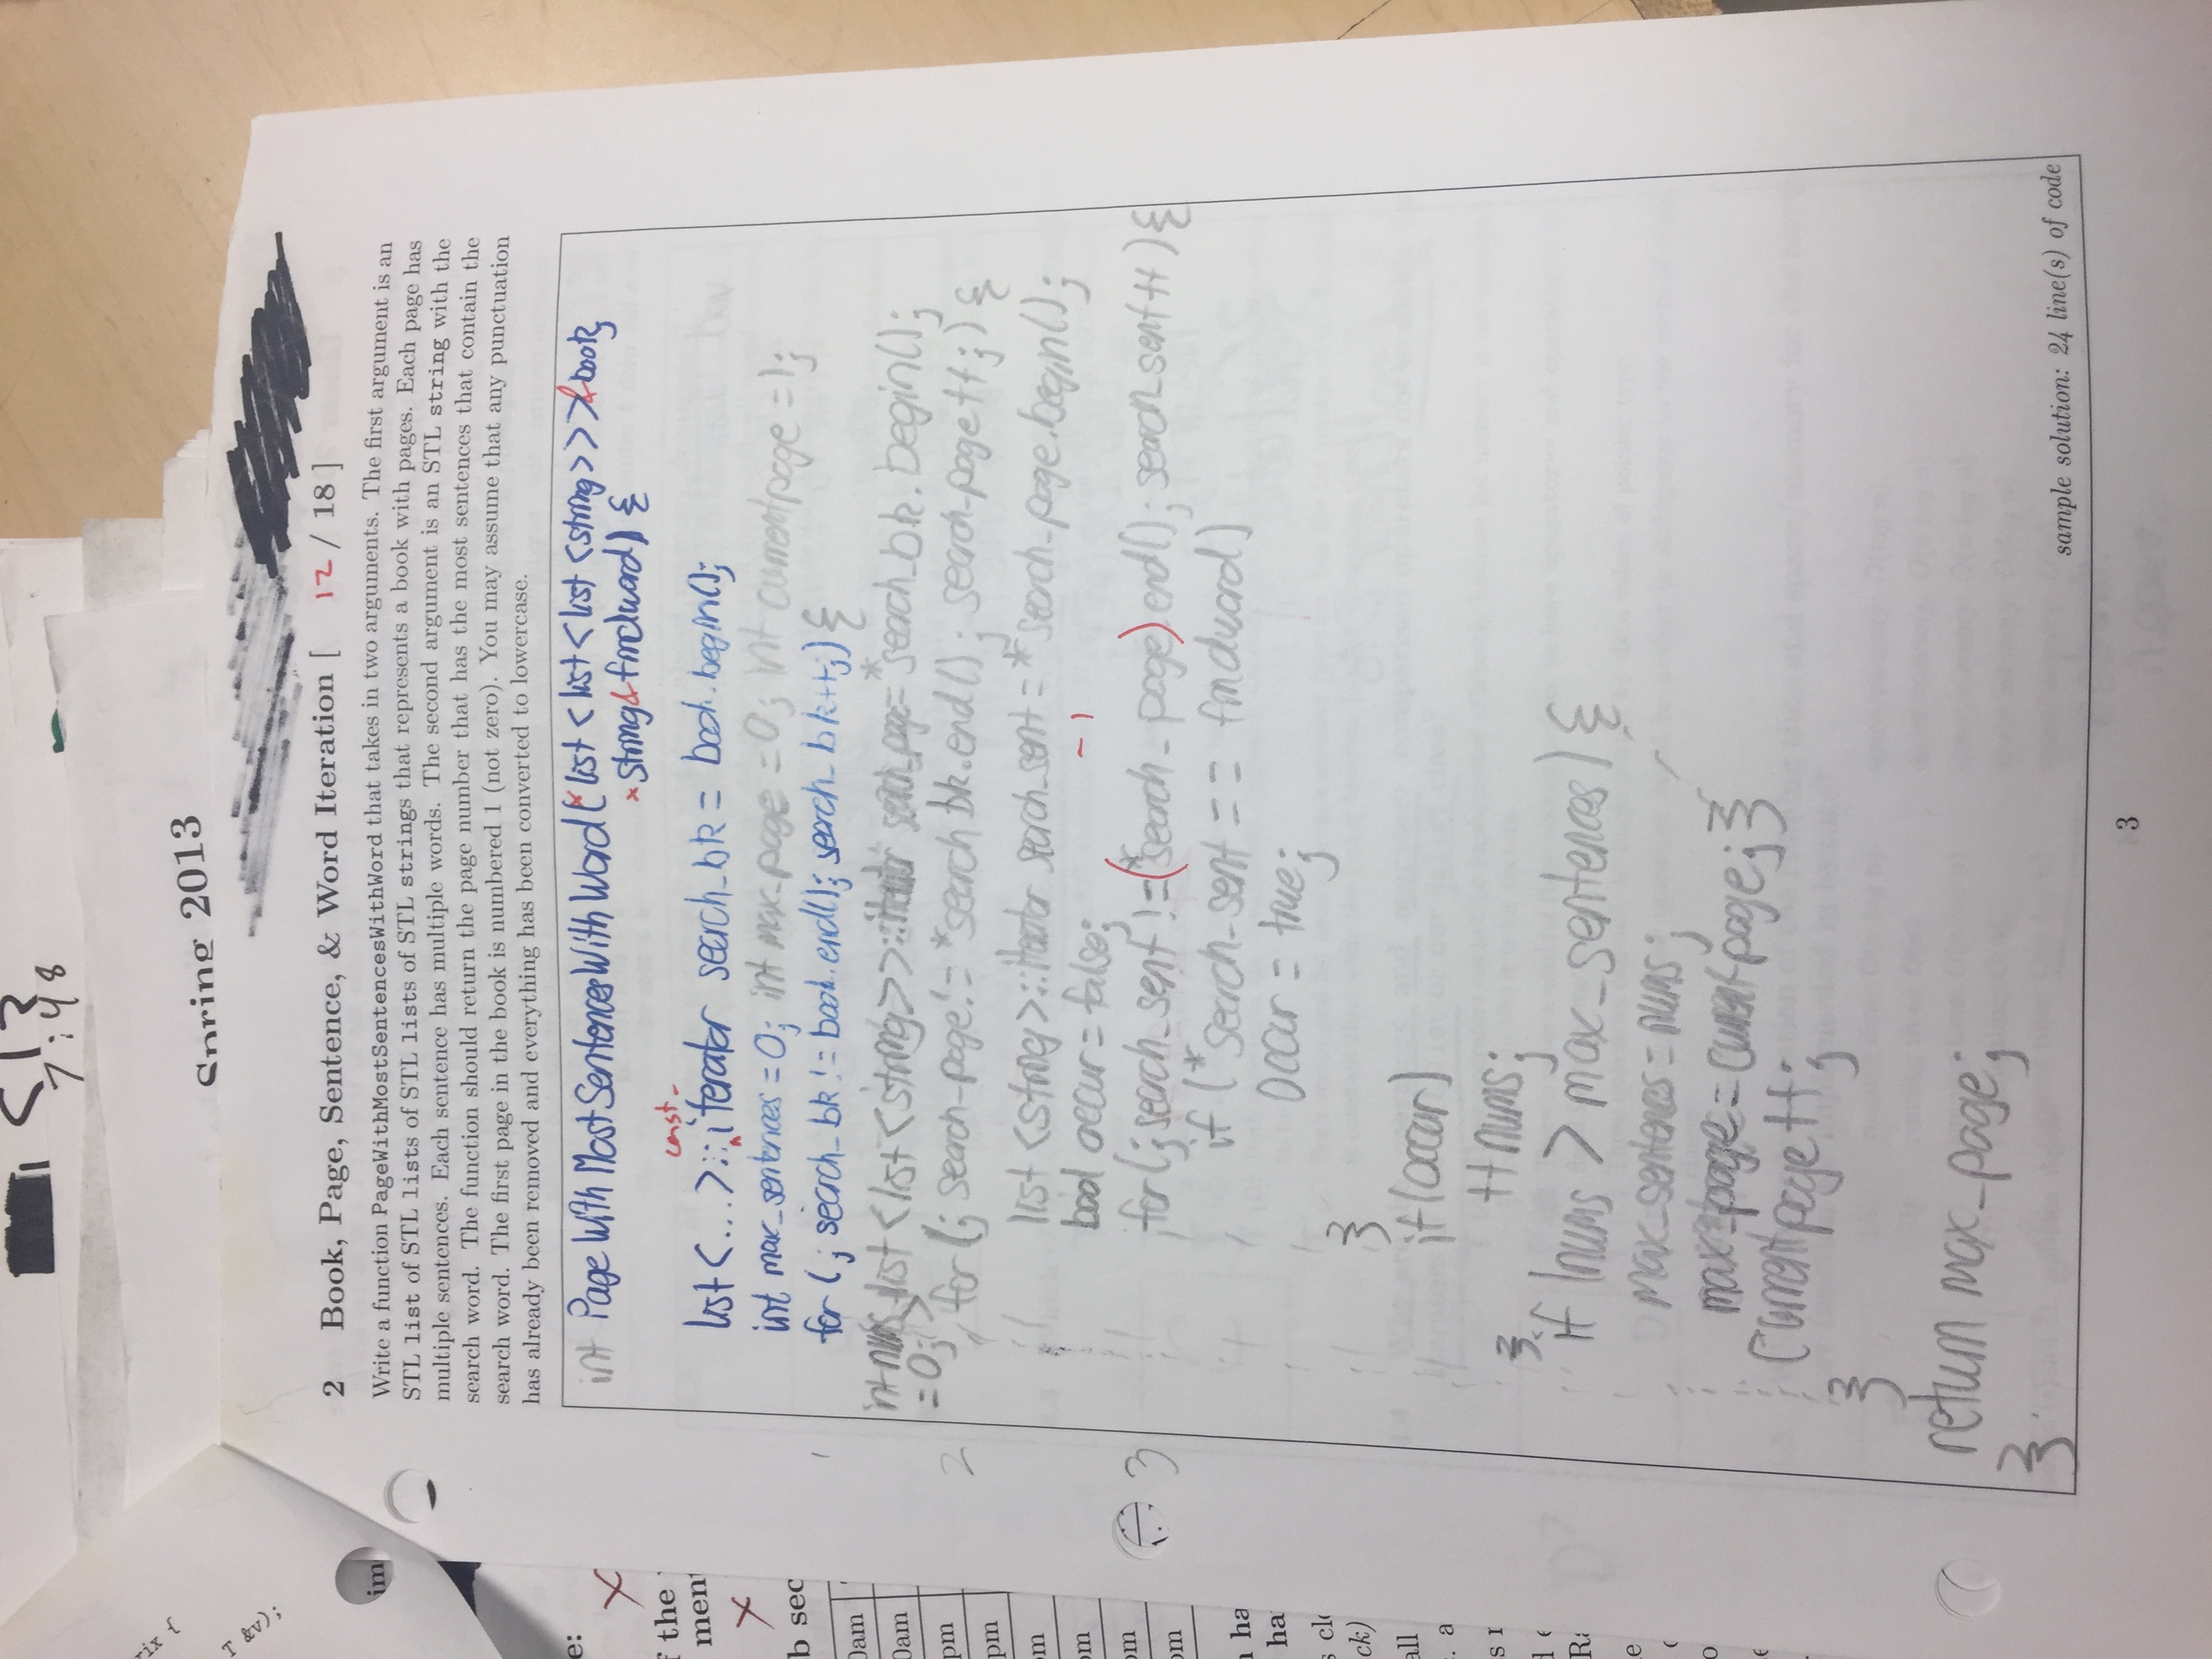 <13
7:48
Spring 2013
2 Book, Page, Sentence, & Word Iteration [ 12 / 18 ]
Write a function PageWithMostSentencesWithWord that takes in two arguments. The first argument is an
STL list of STL lists of STL lists of STL strings that represents a book with pages. Each page has
multiple sentences. Each sentence has multiple words. The second argument is an STL string with the
search word. The function should return the page number that has the most sentences that contain the
search word. The first page in the book is numbered 1 (not zero). You may assume that any punctuation
has already been removed and everything has been converted to lowercase.
int PageWithMostSentencesWithWord(list<list<list<string>>>& book,
string& findword) {
const-
list<...>::iterator search_bk = book.begin();
int max_sentences = 0; int max_page = 0; int currentpage = 1;
for (; search_bk != book.end(); search_bk++;) {
list<list<string>>::iterator search_page = *search_bk.begin();
int nums = 0;
for (; search-page != *search bk.end(); search-page++;) {
list<string>::iterator search_sent = *search-page.begin();
bool occur = false;
-1
for (; search_sent != (*search-page).end(); search_sent++) {
if (*search-sent == findword)
occur = true;
}
if (occur)
++nums;
}
if (nums > max_sentences) {
max_sentences = nums;
max-page = currentpage; }
currentpage++;
}
return max_page;
}
1
2
3
sample solution: 24 line(s) of code
3
rix {
T &v);
im
e:
f the
ment
b sec
0am
0am
pm
pm
om
pm
om
pm
n ha
ha
s cl
ck)
all
. a
s r